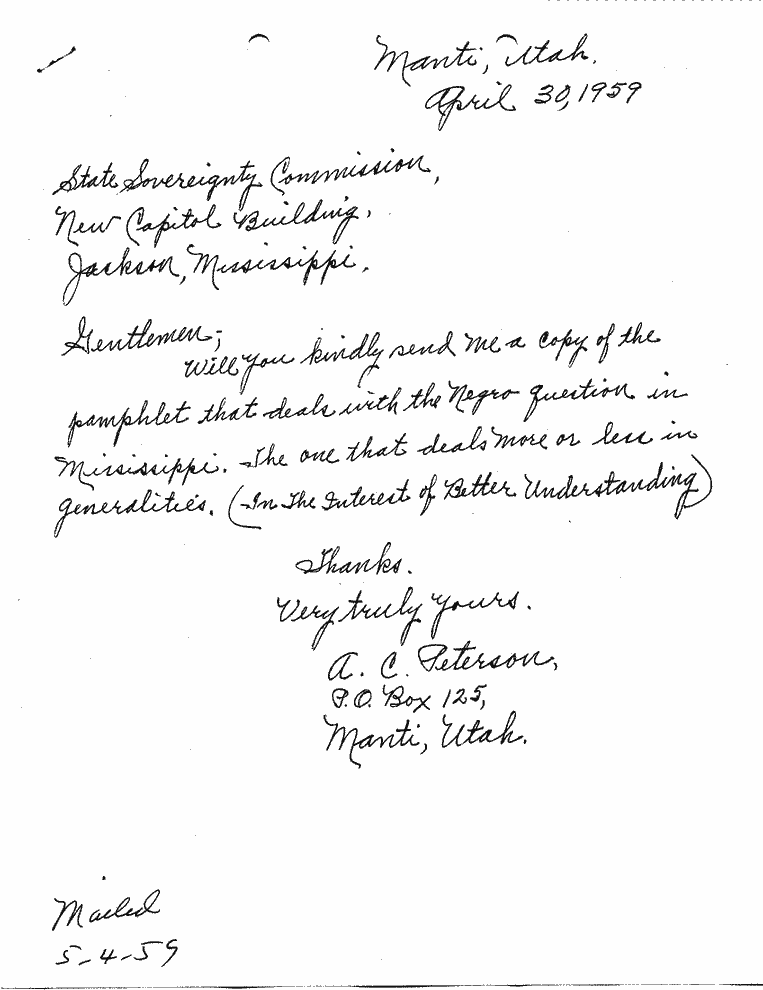 Manti, Utah.
April 30, 1959
State Sovereignty Commission,
New Capitol Building,
Jackson, Mississippi.
Gentlemen;
Will you kindly send me a copy of the
pamphlet that deals with the Negro question in
Mississippi. The one that deals more or less in
generalities. (In The Interest of Better Understanding)
Thanks.
Very truly yours.
A. C. Peterson,
P.O. Box 125,
Manti, Utah.
Mailed
5-4-59